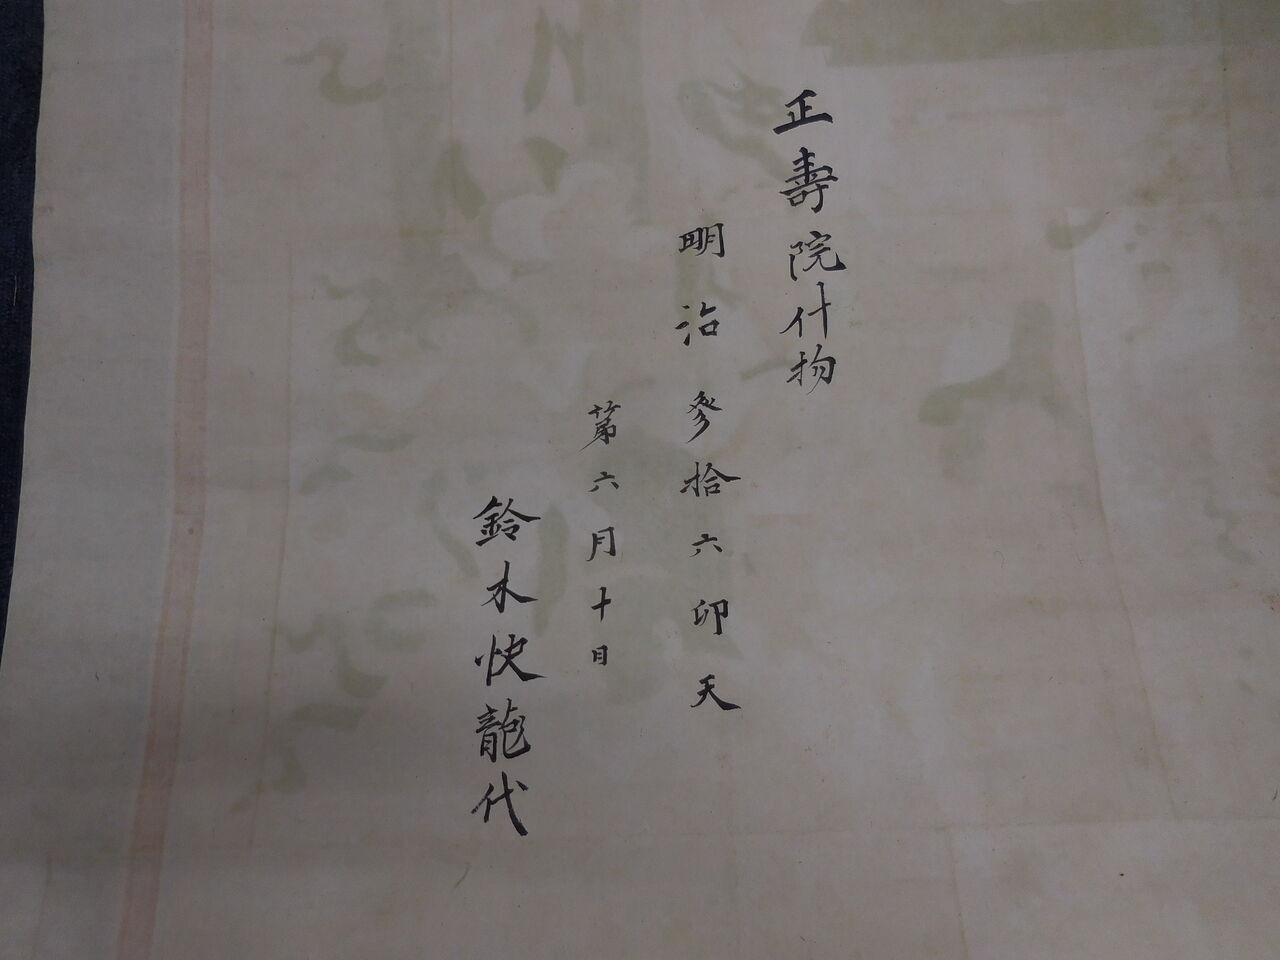 正壽院什物
明治參拾六卯天
第六月十日
鈴木快龍代